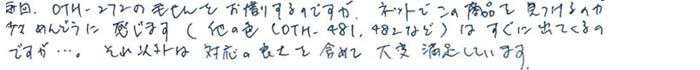 毎回、OTH-272のもせんをお借りするのですが、ネットでこの商品を見つけるのが
少々めんどうに感じます（他の色（OTH-481, 482など）はすぐに出てくるの
ですが…。それ以外は対応の良さを含めて大変満足しています